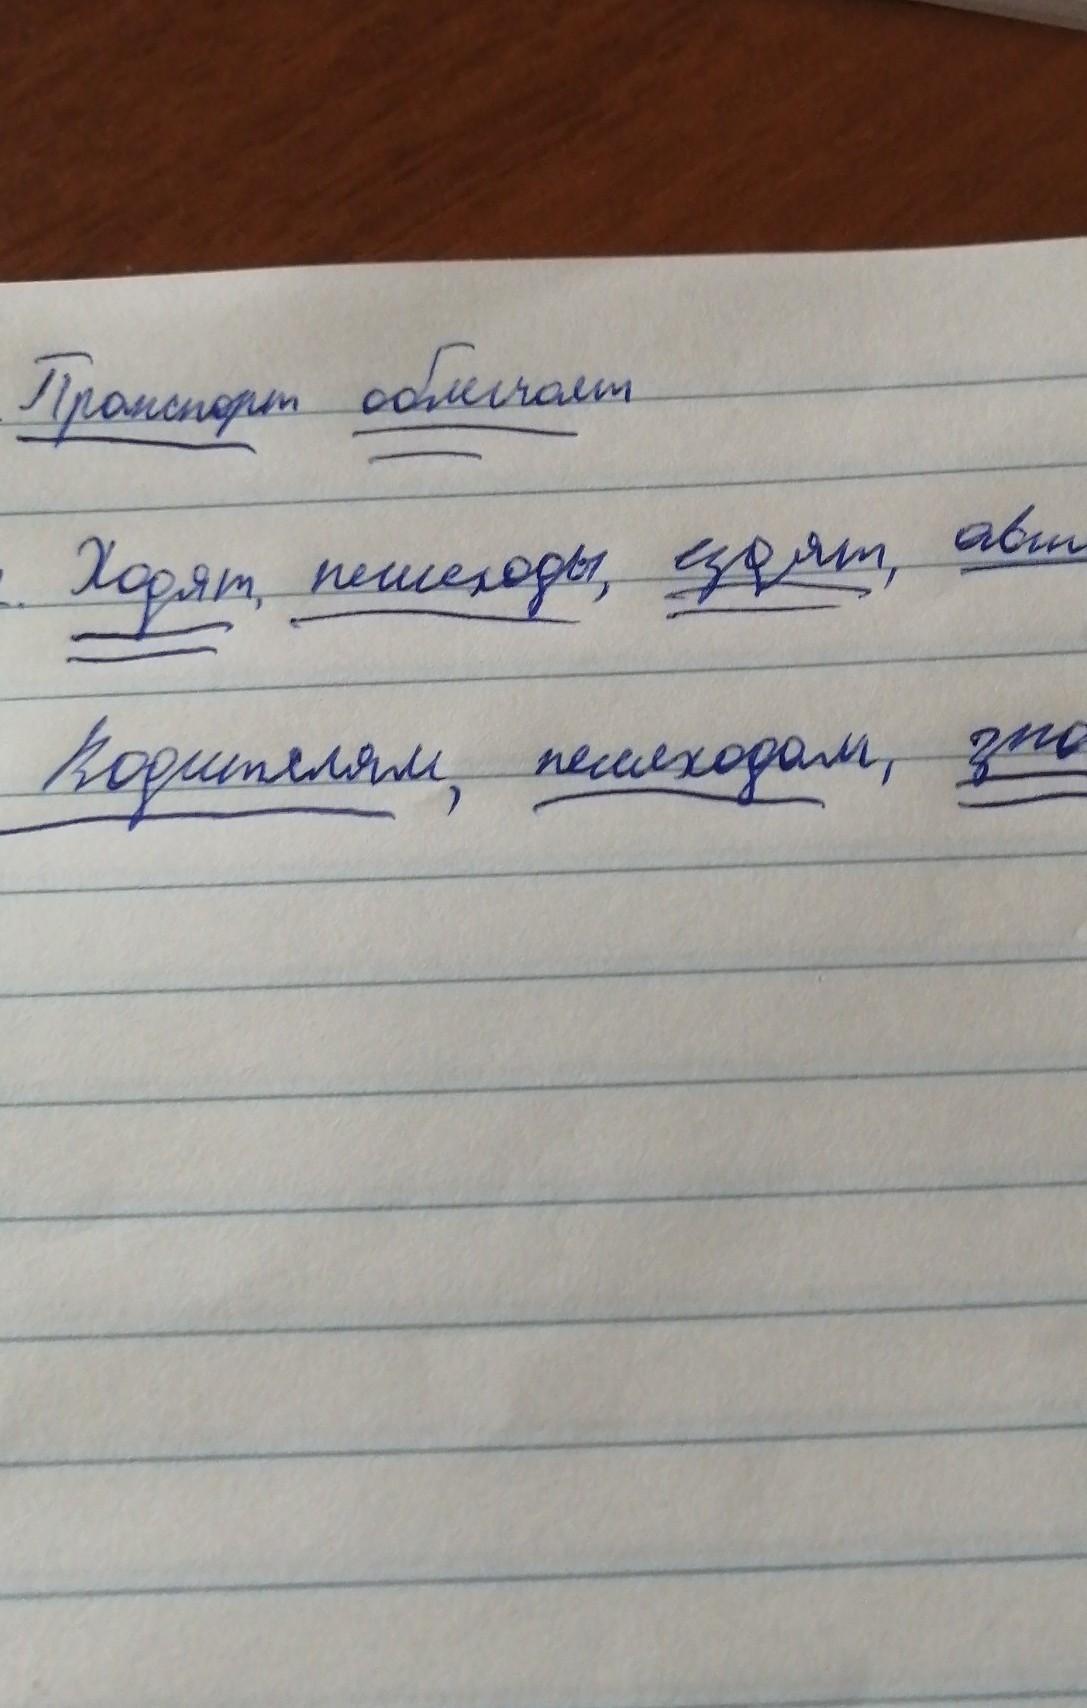 Транспорт облегчает
Ходят, пешеходы, ездят, авт
Водителям, пешеходам, зна